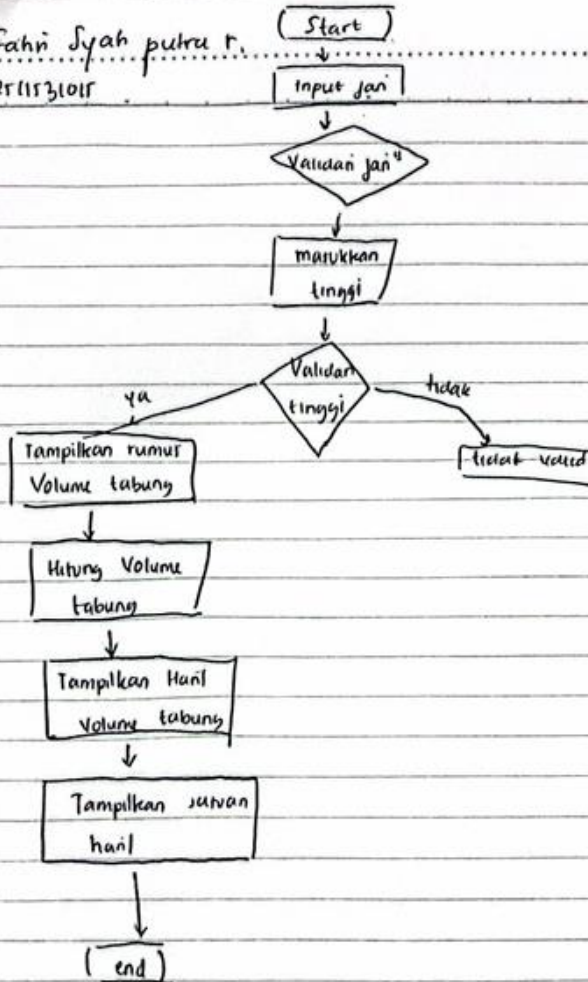 Fahri Syah putra r.
Start
Input jari
Validasi jari"
masukkan
tinggi
Validasi
tinggi
ya
tidak
Tampilkan rumus
Volume tabung
tidak valid
Hitung Volume
tabung
Tampilkan Hasil
Volume tabung
Tampilkan satuan
hasil
end